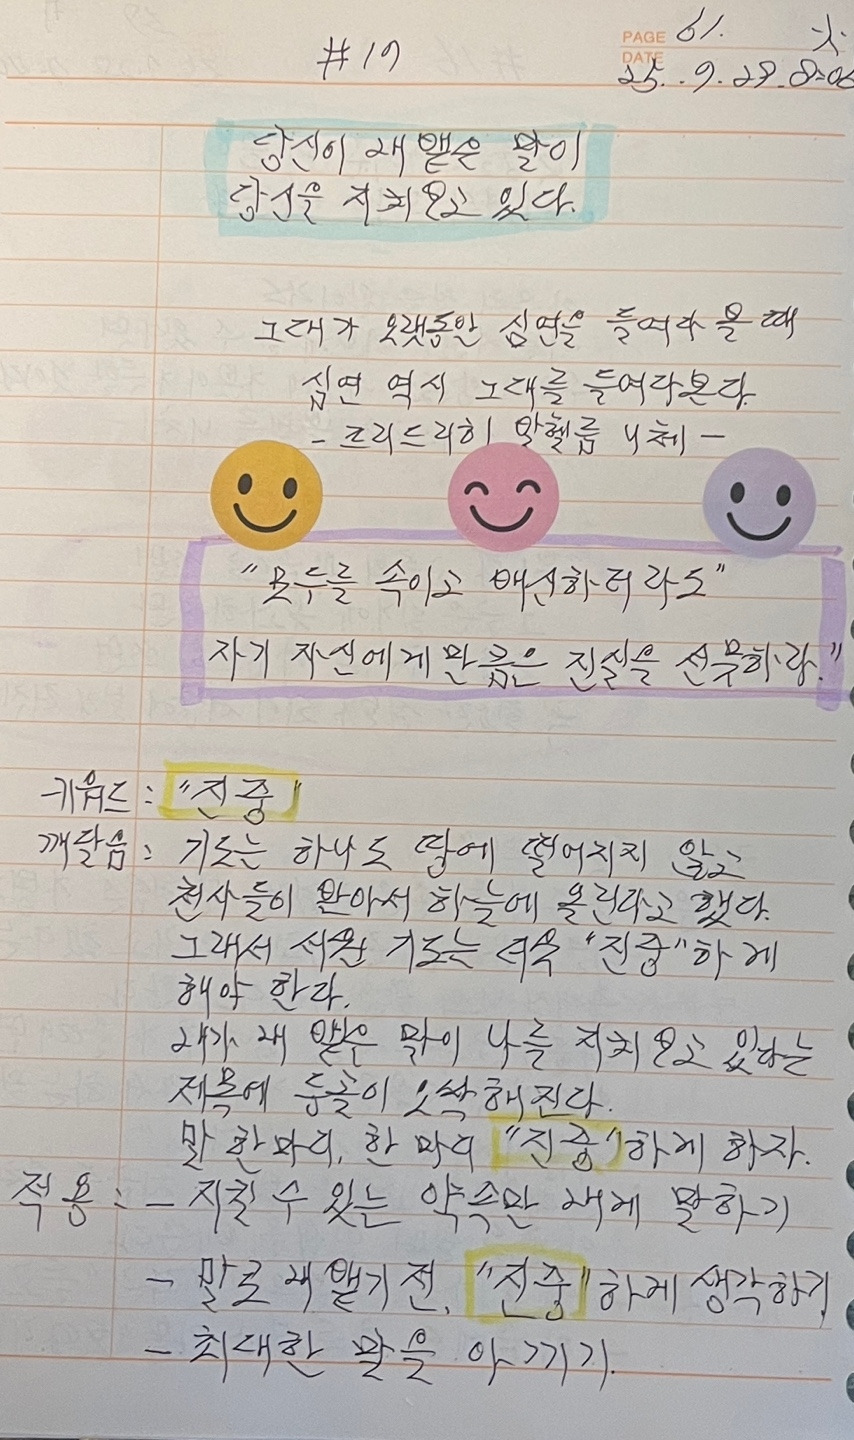 #19
PAGE 61.
DATE 25. 9. 29. 8:06
당신이 내뱉은 말이
당신을 지켜보고 있다.
그대가 오랫동안 심연을 들여다 볼 때
심연 역시 그대를 들여다본다.
- 프리드리히 빌헬름 니체 -
"모두를 속이고 배신하더라도"
자기 자신에게 만큼은 진실을 선물하라."
키워드 : "진중"
깨달음 : 기도는 하나도 땅에 떨어지지 않고
천사들이 받아서 하늘에 올린다고 했다.
그래서 서원 기도는 더욱 "진중"하게
해야 한다.
내가 내뱉은 말이 나를 지켜보고 있다는
제목에 등골이 오싹해진다.
말 한마디, 한 마디 "진중"하게 하자.
적용 : - 지킬 수 있는 약속만 하게 말하기
- 말로 내뱉기 전, "진중"하게 생각하기,
- 최대한 말을 아끼기.